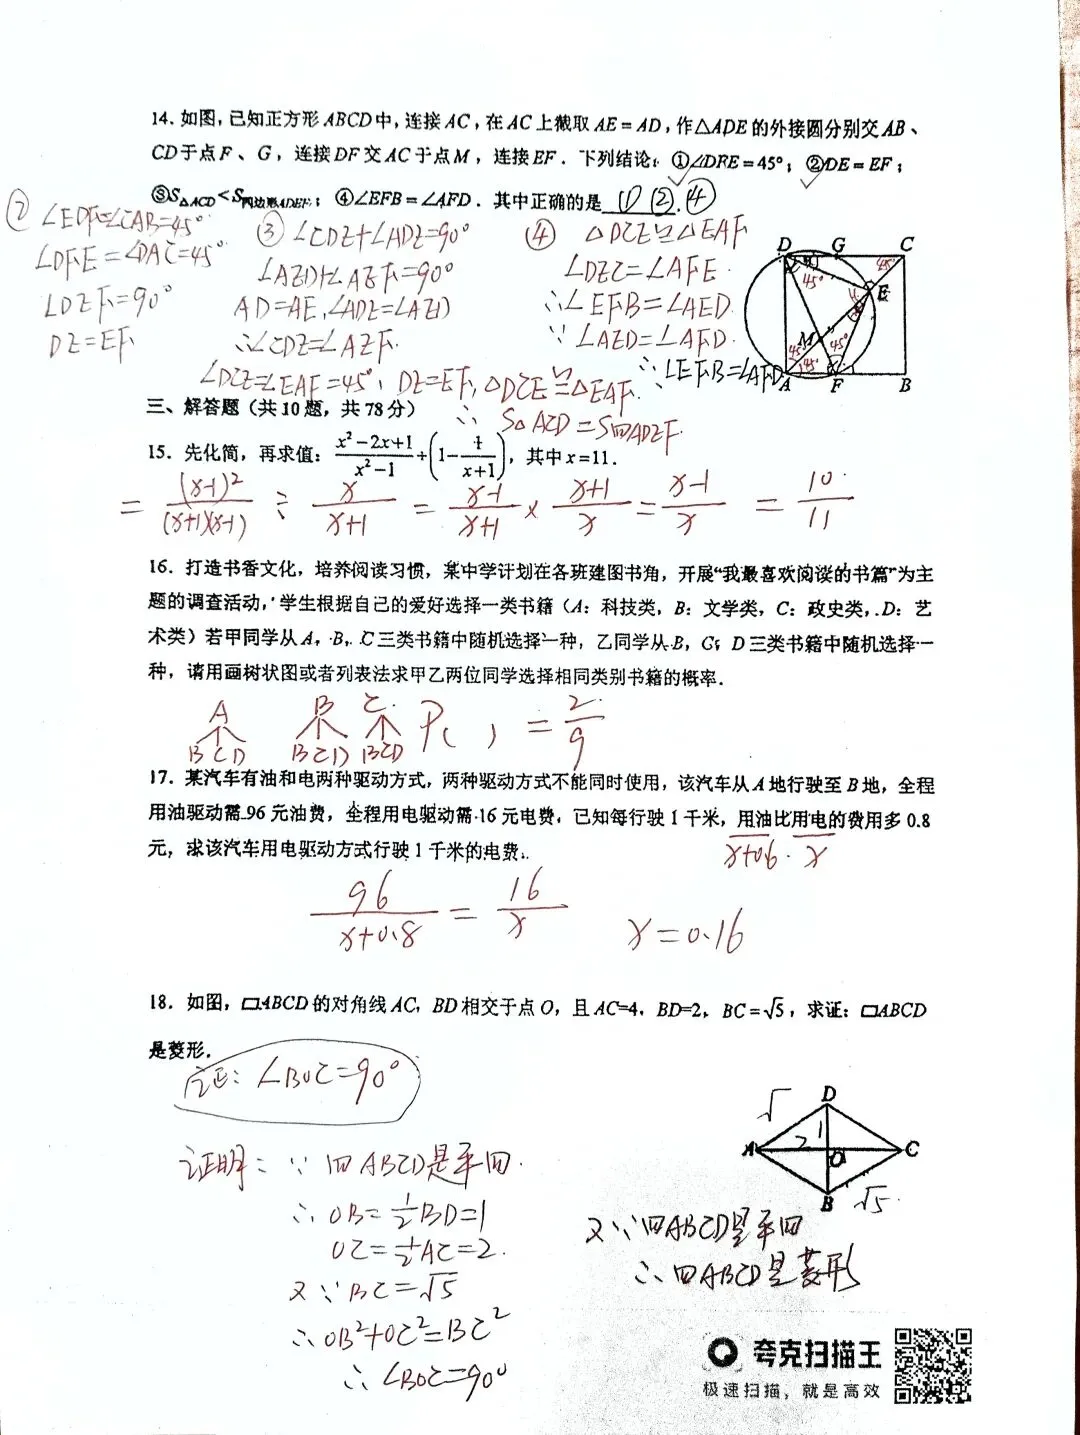 14. 如图,已知正方形ABCD中,连接AC,在AC上截取AE=AD,作△ADE的外接圆分别交AB、
CD于点F、G,连接DF交AC于点M,连接EF.下列结论: ①∠DFE=45°; ②DE=EF;
③S△ACD<S四边形ADEF; ④∠EFB=∠AFD.其中正确的是 ①②④
② ∠EDF=∠CAB=45°
∠DFE=∠DAC=45°
∠DEF=90°
DE=EF
③ ∠CDE+∠ADE=90°
∠AED+∠AEF=90°
AD=AE,∠ADE=∠AED
∴∠CDE=∠AEF
∠DCE=∠EAF=45°, DE=EF, △DCE≌△EAF.
∴ S△ACD=S四ADEF.
④ △DCE≌△EAF
∠DEC=∠AFE.
∴∠EFB=∠AED
∵∠AED=∠AFD.
∴∠EFB=∠AFD
D G C
45° 45°
E
M
45° 45° 45°
A F B
三、解答题(共10题,共78分)
15. 先化简,再求值: (x²-2x+1)/(x²-1)÷(1-1/(x+1)),其中x=11.
= (x-1)²/((x+1)(x-1)) ÷ x/(x+1) = (x-1)/(x+1) × (x+1)/x = (x-1)/x = 10/11
16. 打造书香文化,培养阅读习惯,某中学计划在各班建图书角,开展“我最喜欢阅读的书篇”为主
题的调查活动,学生根据自己的爱好选择一类书籍(A: 科技类, B: 文学类, C: 政史类, D: 艺
术类)若甲同学从A,B,C三类书籍中随机选择一种,乙同学从B,C,D三类书籍中随机选择一
种,请用画树状图或者列表法求甲乙两位同学选择相同类别书籍的概率.
A B C
BCD BCD BCD P( ) = 2/9
17. 某汽车有油和电两种驱动方式,两种驱动方式不能同时使用,该汽车从A地行驶至B地,全程
用油驱动需96元油费,全程用电驱动需16元电费,已知每行驶1千米,用油比用电的费用多0.8
元,求该汽车用电驱动方式行驶1千米的电费.
x+0.6. x
96/(x+0.8) = 16/x x=0.16
18. 如图,▱ABCD的对角线AC,BD相交于点O,且AC=4,BD=2,BC=√5,求证:▱ABCD
是菱形.
证: ∠BOC=90°
D
A 2 1 O C
B √5
证明: ∵ 四ABCD是平四.
∴ OB=1/2BD=1
OC=1/2AC=2.
又∵BC=√5
∴OB²+OC²=BC²
∴∠BOC=90°
又∵四ABCD是平四
∴四ABCD是菱形
夸克扫描王
极速扫描,就是高效